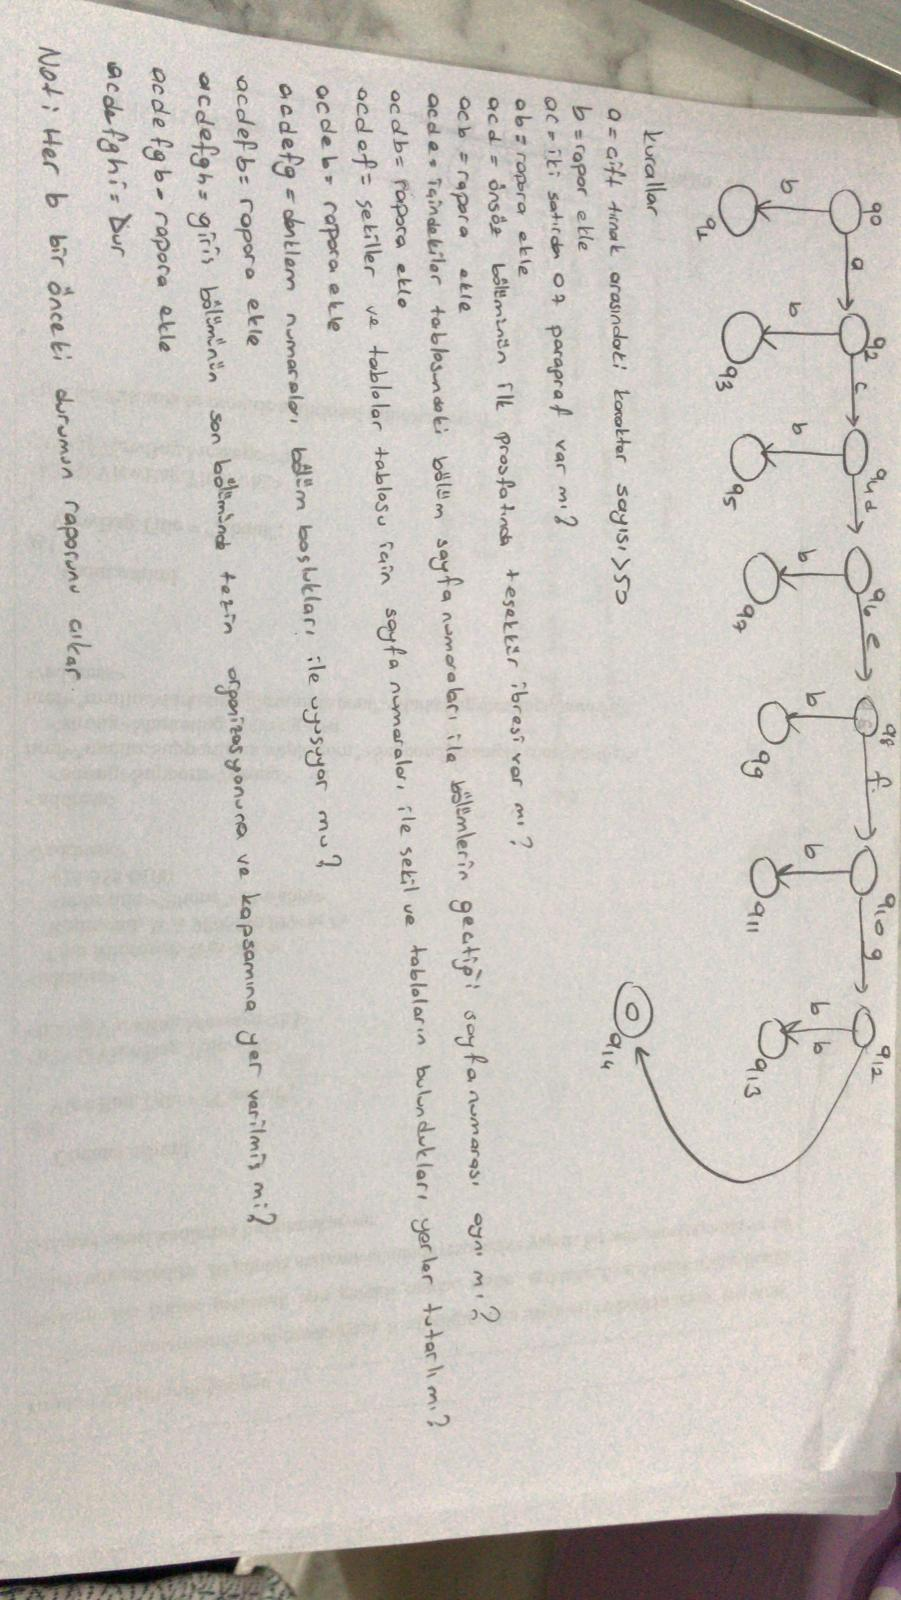 q0 a q2 c q4 d q6 e q8 f q10 g q12
b b b b b b b b
q1 q3 q5 q7 q9 q11 q13
q14
kurallar
a = çift tırnak arasındaki karakter sayısı >50
b = rapor ekle
ac = iki satırdan az paragraf var mı?
ab = rapora ekle
acd = önsöz bölümünün ilk prosfatında teşekkür ibresi var mı?
acb = rapora ekle
acde = içindekiler tablosundaki bölüm sayfa numaraları ile bölümlerin geçtiği sayfa numarası aynı mı?
acdb = rapora ekle
acdef = şekiller ve tablolar tablosu için sayfa numaraları ile şekil ve tabloların bulundukları yerler tutarlı mı?
acdeb = rapora ekle
acdefg = denklem numaraları bölüm başlıkları ile uyuşuyor mu?
acdefb = rapora ekle
acdefgh = giriş bölümünün son bölümünde tezin organizasyonuna ve kapsamına yer verilmiş mi?
acdefgb = rapora ekle
acdefghi = Dur
Not: Her b bir önceki durumun raporunu çıkar.